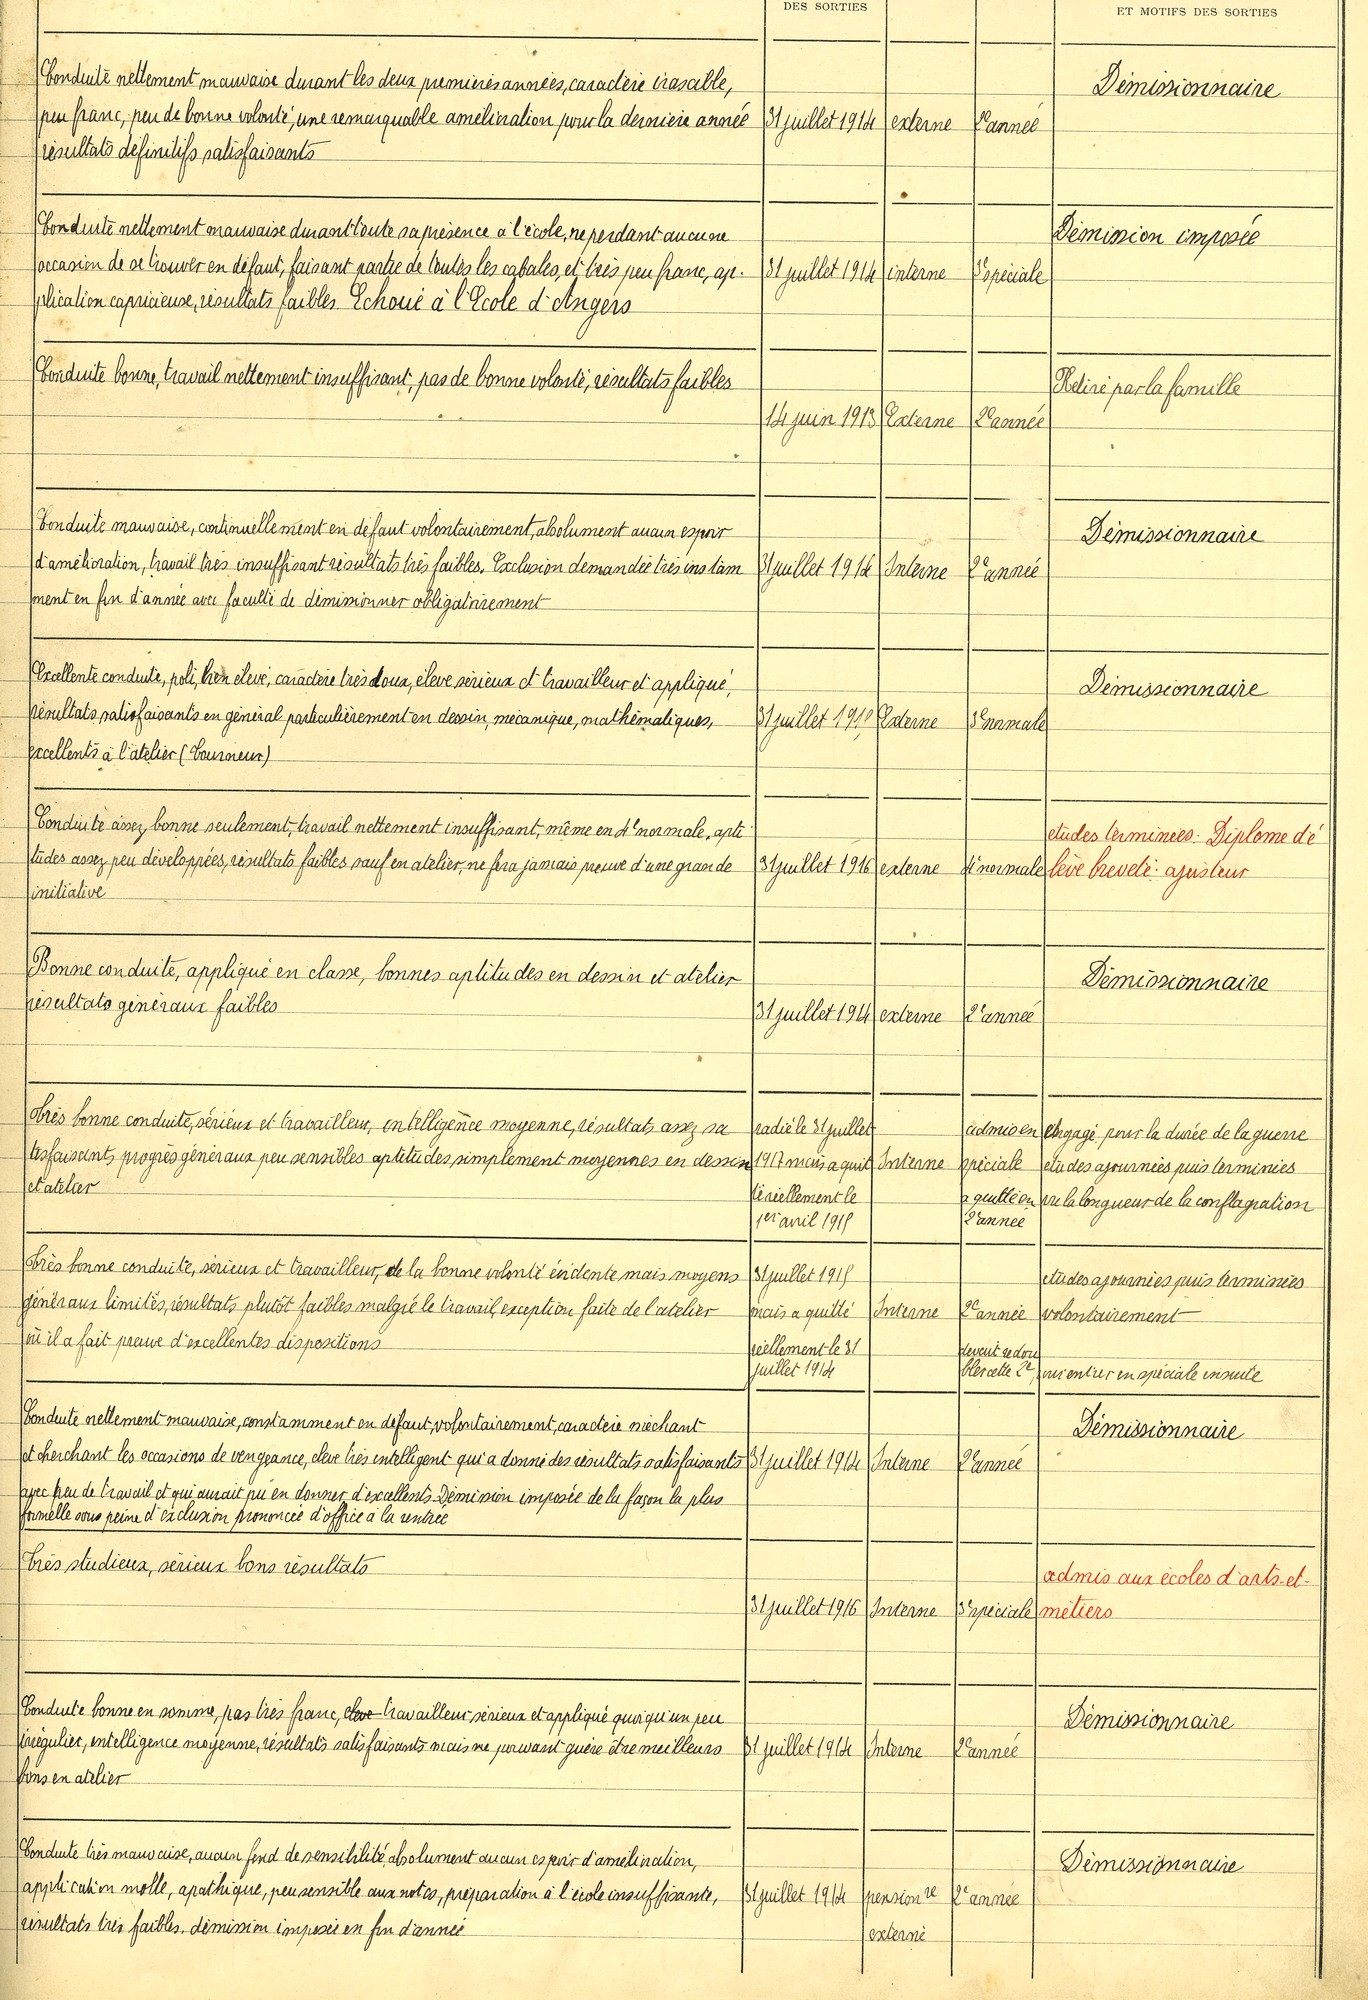 DES SORTIES
ET MOTIFS DES SORTIES
Conduite nettement mauvaise durant les deux premières années, caractère irascible,
peu franc, peu de bonne volonté, une remarquable amélioration pour la dernière année
résultats définitifs satisfaisants
31 juillet 1914
externe
2e année
Démissionnaire
Conduite nettement mauvaise durant toute sa présence à l'école, ne perdant aucune
occasion de se trouver en défaut, faisant partie de toutes les cabales, et très peu franc, ap-
plication capricieuse, résultats faibles. Echoué à l'Ecole d'Angers
31 juillet 1914
interne
3e spéciale
Démission imposée
Conduite bonne, travail nettement insuffisant, pas de bonne volonté, résultats faibles
14 juin 1913
Externe
2e année
Retiré par la famille
Conduite mauvaise, continuellement en défaut volontairement, absolument aucun espoir
d'amélioration, travail très insuffisant résultats très faibles. Exclusion demandée très instam
ment en fin d'année avec faculté de démissionner obligatoirement
31 juillet 1914
Interne
2e année
Démissionnaire
Excellente conduite, poli, bien élevé, caractère très doux, élève sérieux et travailleur et appliqué,
résultats satisfaisants en général particulièrement en dessin, mécanique, mathématiques,
excellents à l'atelier (Tourneur)
31 juillet
Externe
3e normale
Démissionnaire
Conduite assez bonne seulement, travail nettement insuffisant, même en 4e normale, apti
tudes assez peu développées, résultats faibles sauf en atelier, ne fera jamais preuve d'une grande
initiative
31 juillet 1916
externe
4e normale
etudes terminées: Diplome d'é
lève breveté: ajusteur
Bonne conduite, appliqué en classe, bonnes aptitudes en dessin et atelier
résultats généraux faibles
31 juillet 1914
externe
2e année
Démissionnaire
Très bonne conduite, sérieux et travailleur, intelligence moyenne, résultats assez sa
tisfaisants, progrès généraux peu sensibles aptitudes simplement moyennes en dessin
et atelier
radié le 31 juillet
1917 mais a quit
té réellement le
1er avril 1915
Interne
admis en
spéciale
a quitté en
2e année
engagé pour la durée de la guerre
etudes ajournées puis terminées
vu la longueur de la conflagration
Très bonne conduite, sérieux et travailleur, de la bonne volonté évidente mais moyens
généraux limités, résultats plutôt faibles malgré le travail, exception faite de l'atelier
où il a fait preuve d'excellentes dispositions
31 juillet 1915
mais a quitté
réellement le 31
juillet 1914
Interne
2e année
devait redou
bler cette 2e,
etudes ajournées puis terminées
volontairement
entrer en spéciale ensuite
Conduite nettement mauvaise, constamment en défaut, volontairement, caractère méchant
et cherchant les occasions de vengeance, élève très intelligent qui a donné des résultats satisfaisants
avec peu de travail et qui aurait pu en donner d'excellents. Démission imposée de la façon la plus
formelle sous peine d'exclusion prononcée d'office à la rentrée
31 juillet 1914
Interne
2e année
Démissionnaire
Très studieux, sérieux bons résultats
31 juillet 1916
Interne
3e spéciale
admis aux écoles d'arts-et-
métiers
Conduite bonne en somme, pas très franc, élève travailleur sérieux et appliqué quoiqu'un peu
irrégulier, intelligence moyenne, résultats satisfaisants mais ne pouvant guère être meilleurs
bons en atelier
31 juillet 1914
Interne
2e année
Démissionnaire
Conduite très mauvaise, aucun fond de sensibilité, absolument aucun espoir d'amélioration,
application molle, apathique, peu sensible aux notes, préparation à l'école insuffisante,
résultats très faibles. démission imposée en fin d'année
31 juillet 1914
pensionre
externé
2e année
Démissionnaire